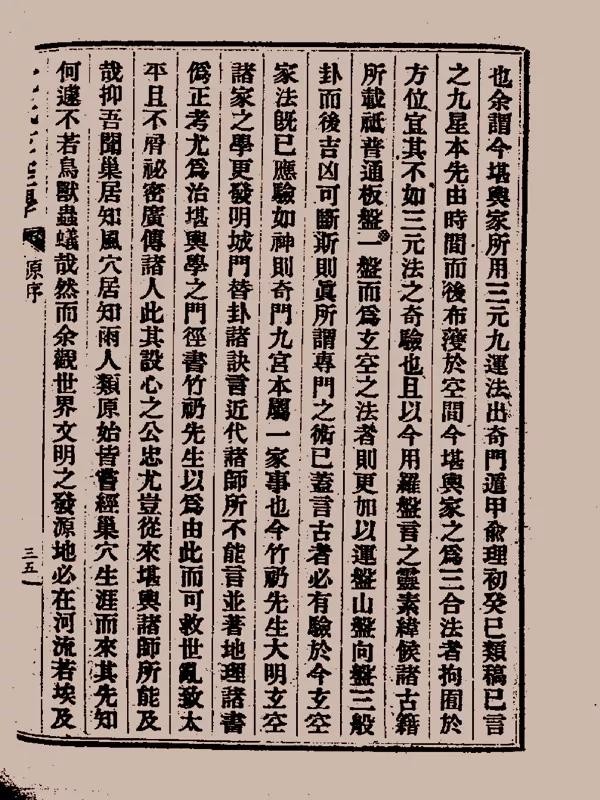 也余謂今堪輿家所用三元九運法出奇門遁甲俞理初癸巳類稿已言
之九星本先由時間而後布濩於空間今堪輿家之為三合法者拘囿於
方位宜其不如三元法之奇驗也且以今用羅盤言之靈素緯候諸古籍
所載祗普通板盤一盤而為玄空之法者則更加以運盤山盤向盤三般
卦而後吉凶可斷斯則眞所謂專門之術已蓋言古者必有驗於今玄空
家法旣已應驗如神則奇門九宮本屬一家事也今竹礽先生大明玄空
諸家之學更發明城門替卦諸訣言近代諸師所不能言並著地理諸書
僞正考尤為治堪輿學之門徑書竹礽先生以為由此而可救世亂致太
平且不屑祕密廣傳諸人此其設心之公忠尤豈從來堪輿諸師所能及
哉抑吾聞巢居知風穴居知雨人類原始皆嘗經巢穴生涯而來其先知
何遽不若鳥獸蟲蟻哉然而余觀世界文明之發源地必在河流若埃及
原序
三五